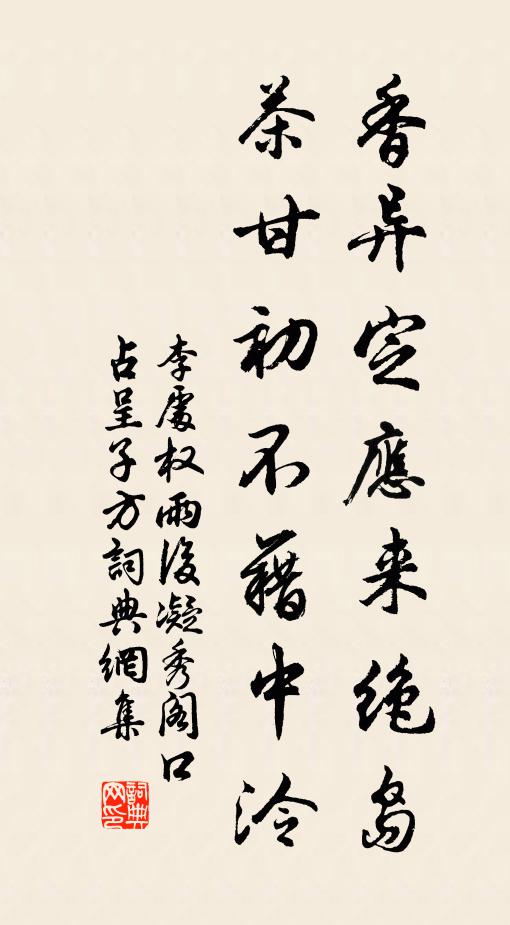 香异定應来绝島
茶甘初不藉中泠
李處权雨後凝秀阁口
占呈子方詞典網集
詞典网印